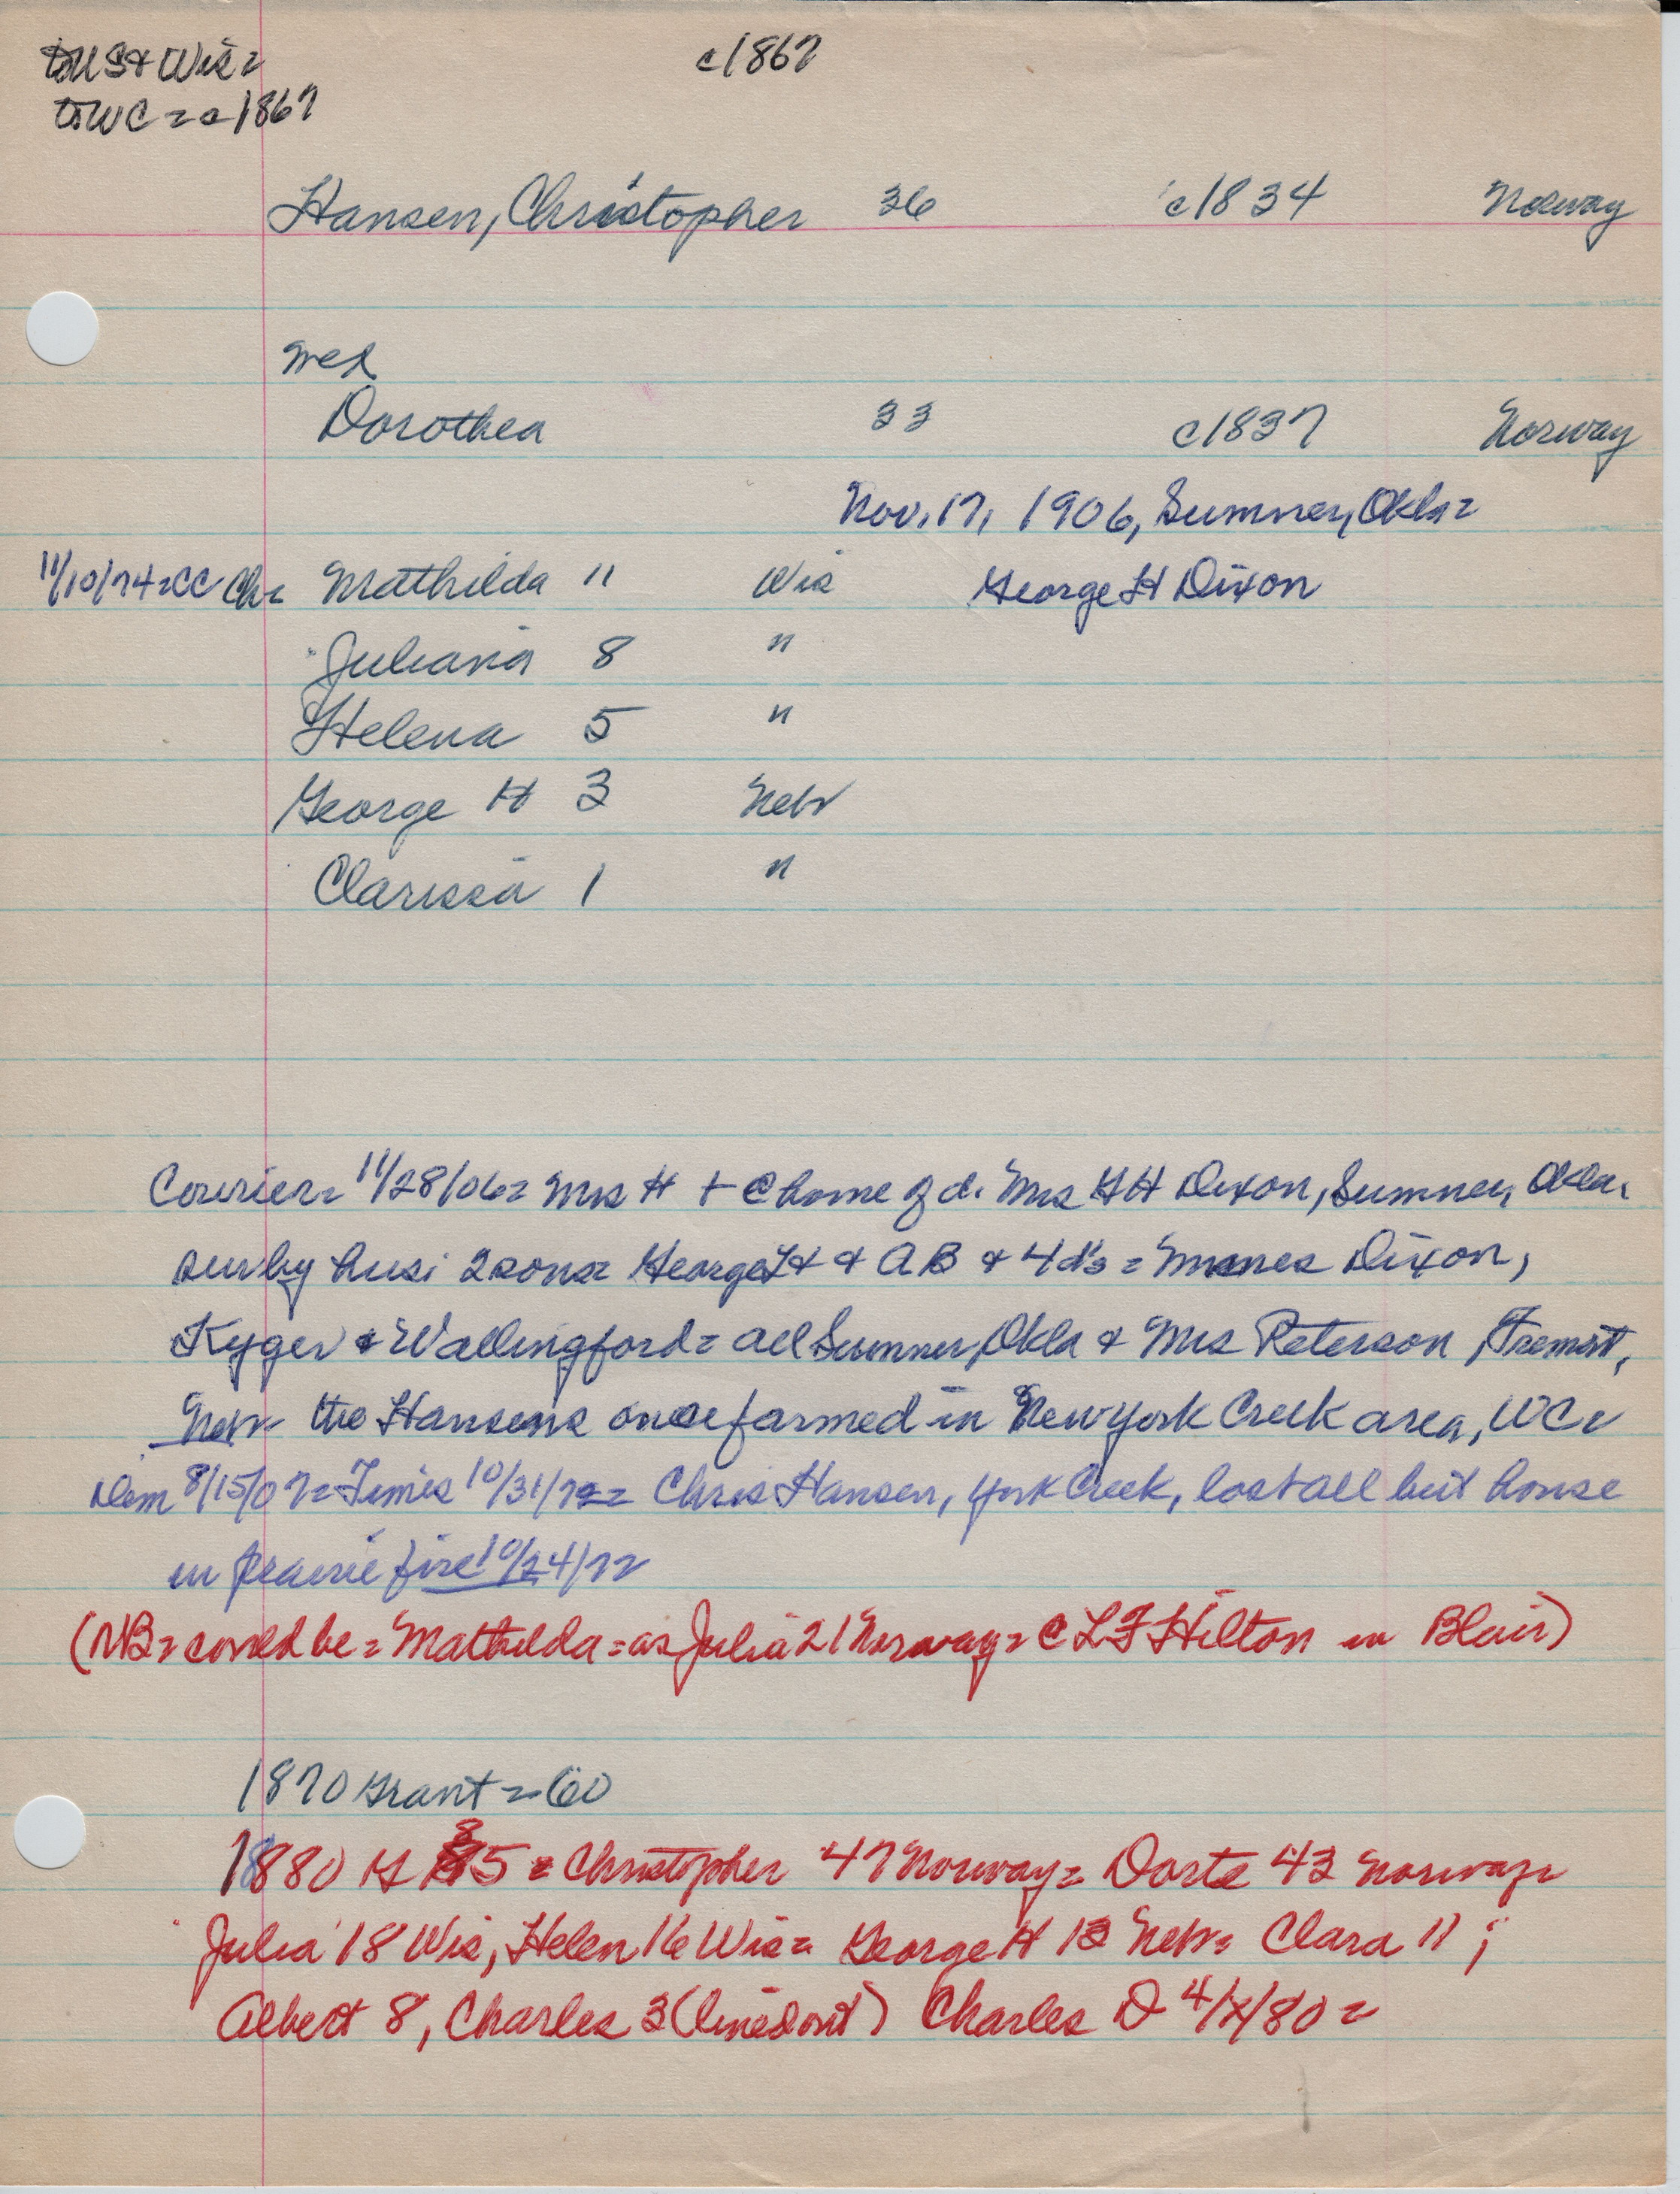 to US & Wis =
c1867
to WC = c1867
Hansen, Christopher 36 c1834 Norway
med
Dorothea 33 c1837 Norway
Nov. 17, 1906, Sumner, Okla =
11/10/74 = CC Ch = Mathilda 11 Wis George H Dixon
Juliana 8 "
Helena 5 "
George H 3 Nebr
Clarissa 1 "
Courier = 11/28/06 = Mrs H + @ home of d. Mrs GH Dixon, Sumner, Okla.
sur by hus; 2 sons = George H & AB & 4 d's = Mmes Dixon,
Kyger & Wallingford = all Sumner, Okla & Mrs Peterson, Fremont,
Nebr the Hansens once farmed in New York Creek area, WC =
Dem 8/15/07 = Times 10/31/72 = Chris Hansen, York Creek, lost all but house
in prairie fire 10/24/72
(NB = could be = Mathilda = as Julia 21 Norway = @ LF Hilton in Blair)
1870 Grant = 60
1880 G 85 = Christopher 47 Norway = Dorte 43 Norway =
Julia 18 Wis, Helen 16 Wis = George H 13 Nebr = Clara 11;
Albert 8, Charles 3 (lined out) Charles D 4/x/80 =